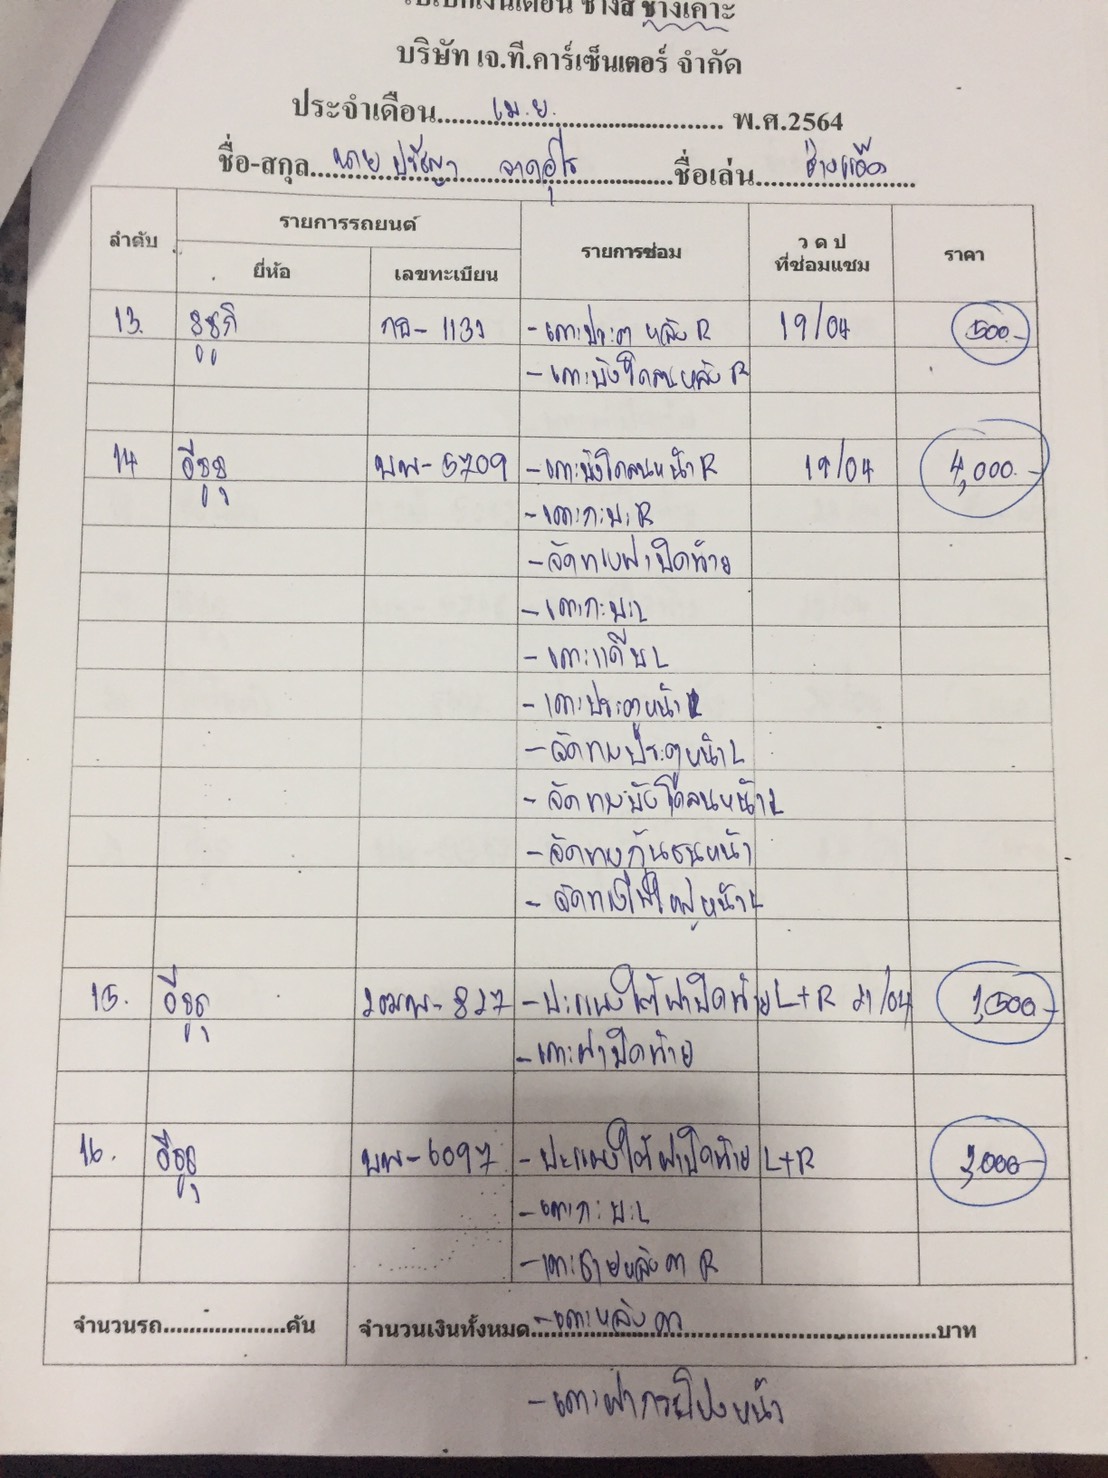 ใบเบิกเงินเดือน ช่างสี ช่างเคาะ
บริษัท เจ.ที.คาร์เซ็นเตอร์ จำกัด
ประจำเดือน เม.ย. พ.ศ.2564
ชื่อ-สกุล นาย ปรัชญา ชื่อเล่น
ลำดับ รายการรถยนต์ รายการซ่อม ว ด ป ที่ซ่อมแซม ราคา
ยี่ห้อ เลขทะเบียน
13. ซูซูกิ - เคาะประตู หลัง R 19/04 500.-
- เคาะบังโคลนหลัง R
14 อีซูซุ บพ-5709 - เคาะบังโคลนหน้า R 19/04 4,000.-
- เคาะกะบะ R
- จัดทรงฝาปิดท้าย
- เคาะกะบะ L
- เคาะแค๊บ L
- เคาะประตูหน้า L
- จัดทรงประตูหน้า L
- จัดทรงบังโคลนหน้า L
- จัดทรงกันชนหน้า
- จัดทรงไฟใหญ่หน้า L
15. อีซูซุ - ปะแผงใต้ฝาปิดท้าย L+R 21/04 1,500.-
- เคาะฝาปิดท้าย
16. อีซูซุ บพ-6097 - ปะแผงใต้ฝาปิดท้าย L+R
- เคาะกะบะ L
- เคาะรางหลังคา R
จำนวนรถ....................คัน จำนวนเงินทั้งหมด - เคาะหลังคา บาท
- เคาะฝากระโปรงหน้า